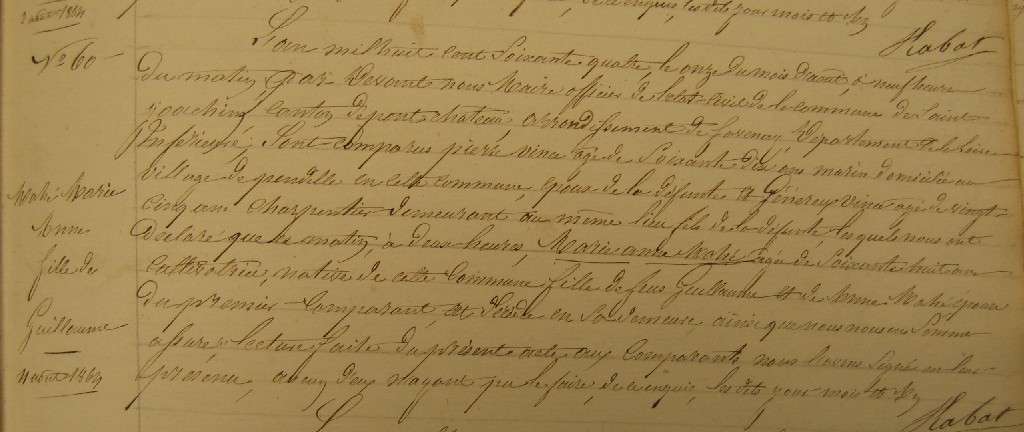 2 août 1864
de ce enquis, les dits jour mois et an
Habat
N° 60
L'an mil huit cent soixante quatre, le onze du mois d'août, à neuf heures
du matin, par devant nous Maire officier de l'état-civil de la commune de Saint-
joachim, canton de pont-chateau, arrondissement de savenay, Département de la loire
Inférieure, sont comparus pierre vince agé de soixante dix ans marin domicilié au
village de pendille en cette commune, époux de la défunte et généreux vince agé de vingt
cinq ans charpentier demeurant au même lieu fils de la défunte, lesquels nous ont
declaré que ce matin, à deux heures, Marie anne Mahé agée de soixante huit ans
cultivatrice, native de cette commune fille de feus Guillaume et de Anne Mahé épouse
du premier comparant, est décédée en sa demeure, ainsi que nous nous en sommes
assuré; lecture faite du présent acte aux comparants, nous l'avons signé en leur
présence, aucun d'eux n'ayant pu le faire, de ce enquis, les dits jour mois et an
Mahé Marie
Anne
fille de
Guillaume
11 août 1864
Habat